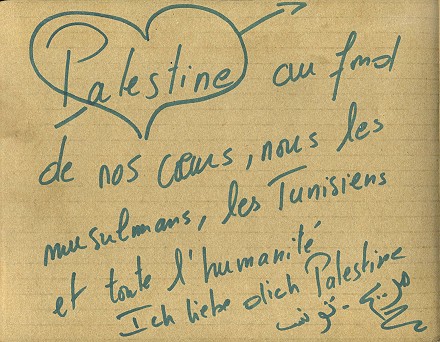 Palestine au fond
de nos cœurs, nous les
musulmans, les Tunisiens
et toute l'humanité
Ich liebe dich Palestine
تونس